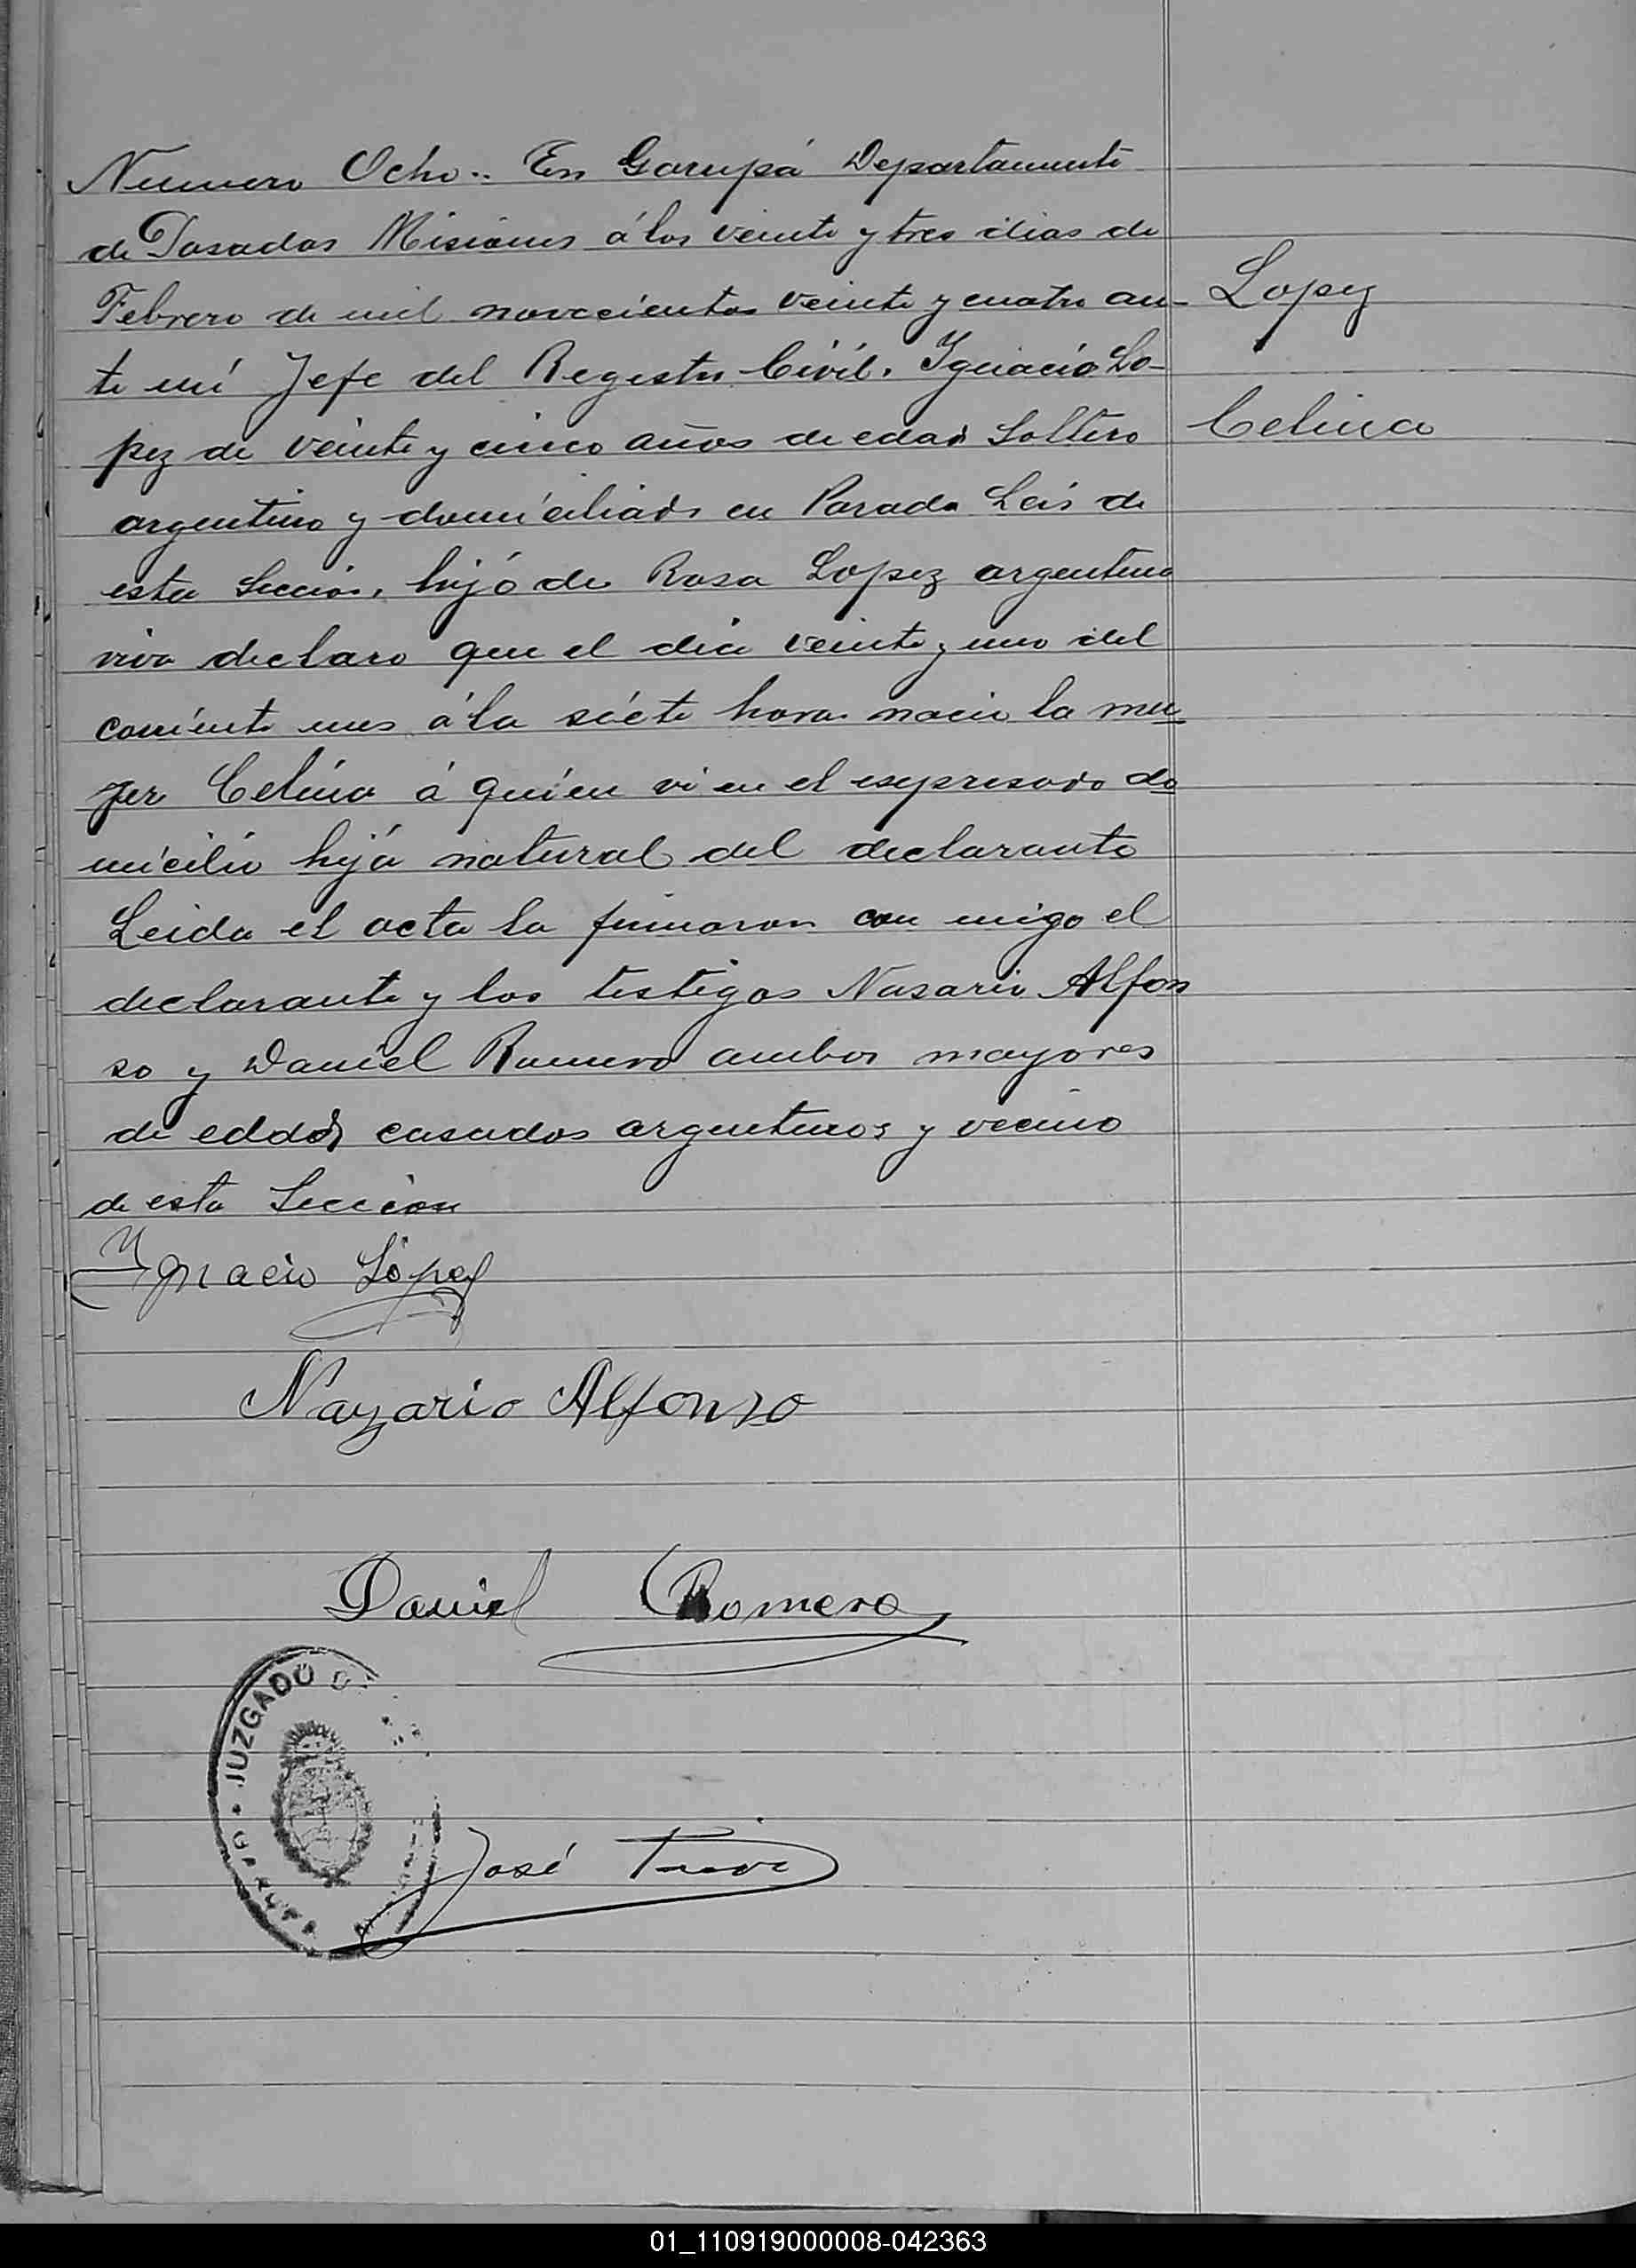 Numero Ocho.. En Garupá Departamento
de Posadas Misiones á los veinte y tres dias de
Febrero de mil novecientos veinte y cuatro an-
te mí Jefe del Registro Civil. Ignacio Lo-
pez de veinte y cinco años de edad Soltero
argentino y domiciliado en Parada Leis de
esta Seccion, hijo de Rosa Lopez argentina
viva declaro que el dia veinte y uno del
corriente mes á la siete horas nacio la mu
jer Celina á quien vi en el espresado do
micilio hija natural del declarante
Leida el acta la firmaron con migo el
declarante y los testigos Nasario Alfon
so y Daniel Romero ambos mayores
de eddad casados argentinos y vecino
de esta Seccion
Lopez
Celina
Ygnacio López
Nazario Alfonso
Daniel Romero
JUZGADO D
GARUPA
José
01_110919000008-042363